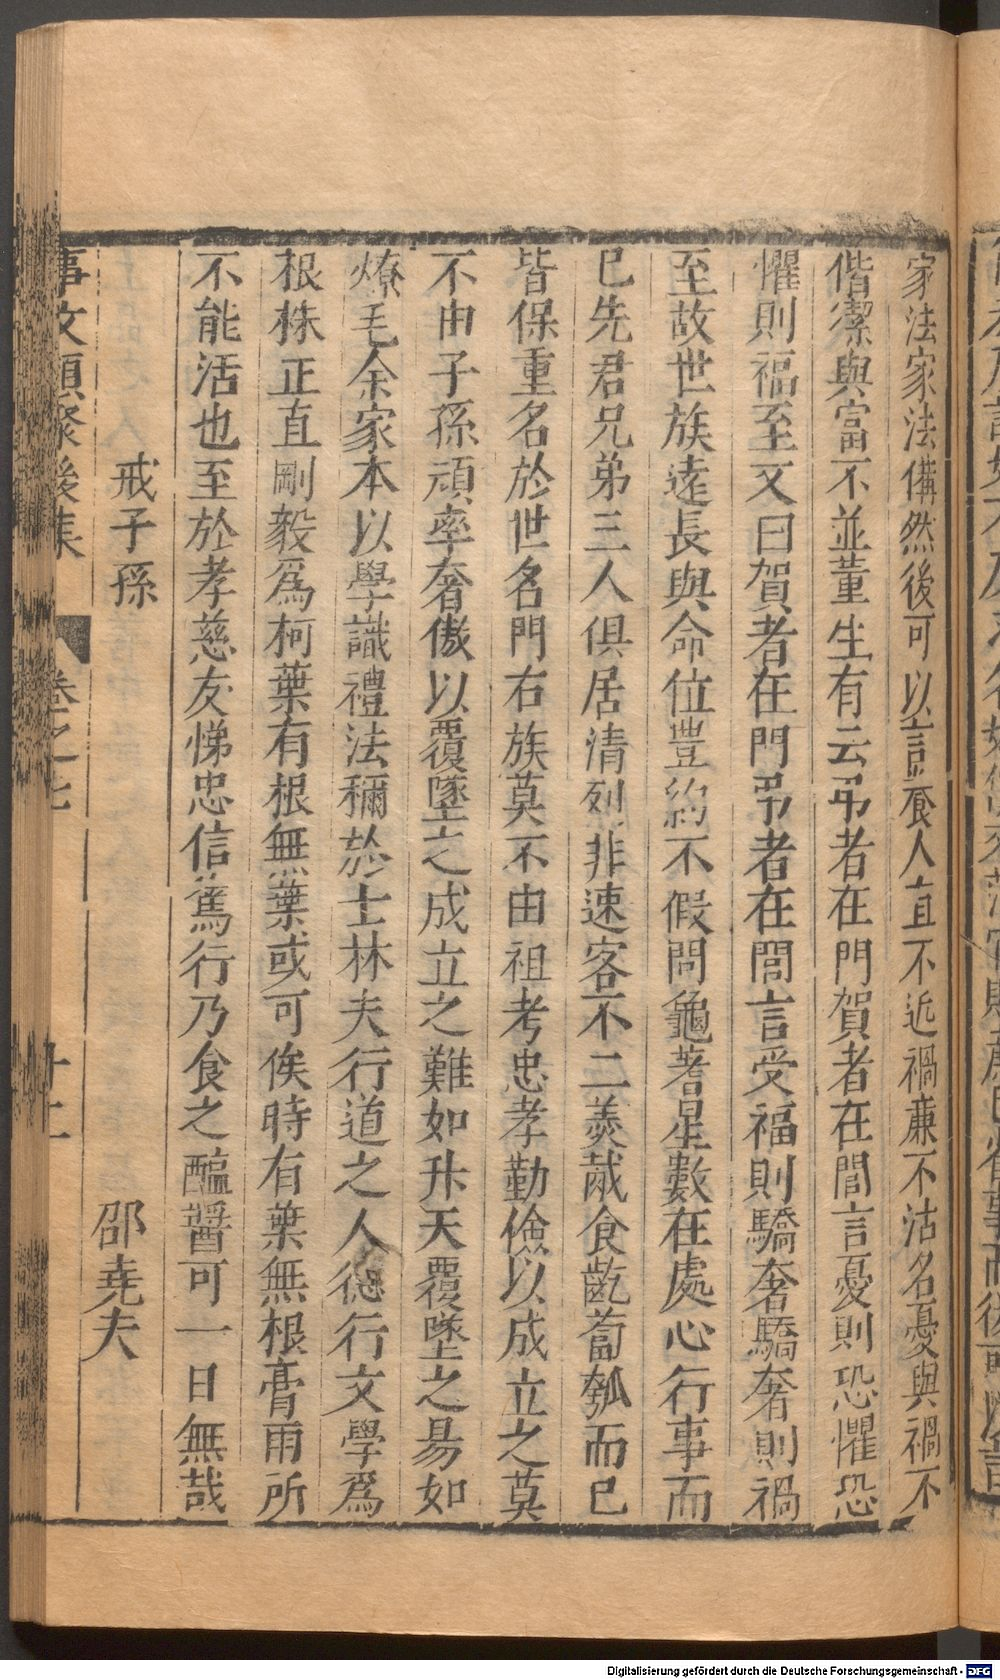 家法家法備然後可以言養人直不近禍亷不沽名憂與禍不
偕潔與富不並董生有云弔者在門賀者在閭言憂則恐懼恐
懼則福至又曰賀者在門弔者在閭言受福則驕奢驕奢則禍
至故世族遠長與命位豊約不假問龜蓍星數在處心行事而
已先君兄弟三人俱居清列非速客不二羹胾食齕蔔瓠而已
皆保重名於世名門右族莫不由祖考忠孝勤儉以成立之莫
不由子孫頑率奢傲以覆墜之成立之難如升天覆墜之易如
燎毛余家本以學識禮法稱於士林夫行道之人德行文學爲
根株正直剛毅爲柯葉有根無葉或可俟時有葉無根膏雨所
不能活也至於孝慈友悌忠信篤行乃食之醢醤可一日無哉
戒子孫　邵堯夫
事文類聚後集　卷之七　十二
Digitalisierung gefördert durch die Deutsche Forschungsgemeinschaft - DFG